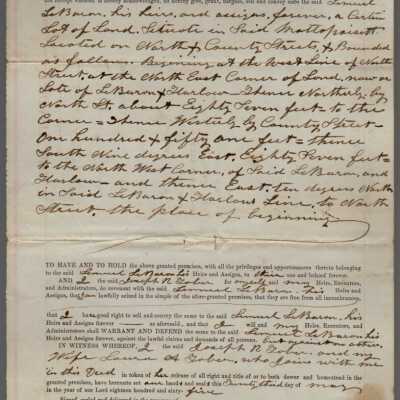 and convey unto the said Lemuel
LeBaron, his heirs, and assigns, forever, a Certain
Lot of Land, Situate in Said Mattapoisett
Located on North & County Streets, & Bounded
as follows. Begining at the West Line of North
Street, at the North East Corner of Land, now or
Late of LeBaron & Harlow – thence Northerly by
North St. about Eighty Seven feet to the
Corner – Thence Westerly by County Street –
One hundred & fifty one feet – thence
South Nine degrees East, Eighty Seven feet –
to the North West Corner, of Said LeBaron, and
Harlow – and thence East, ten degrees North
in Said LeBaron & Harlows Line, to North
Street, the place of beginning
TO HAVE AND TO HOLD the above granted premises, with all the privileges and appurtenances thereto belonging
to the said Lemuel LeBaron his Heirs and Assigns, to their use and behoof forever.
AND I the said Joseph R. for myself and my Heirs, Executors,
and Administrators, do covenant with the said Lemuel LeBaron his Heirs and
Assigns, that I am lawfully seized in fee simple of the afore-granted premises, that they are free from all incumbrances,
that I have good right to sell and convey the same to the said Lemuel LeBaron, his
Heirs and Assigns forever as aforesaid, and that I will and my Heirs, Executors, and
Administrators shall WARRANT AND DEFEND the same to the said Lemuel LeBaron his
Heirs and Assigns forever, against the lawful claims and demands of all persons.
IN WITNESS WHEREOF, I the said Joseph R. and my
Wife Laura A. who joins with me
in this Deed in token of her release of all right and title of or to both dower and homestead in the
granted premises, have hereunto set our hand and seal this day of May
in the year of our Lord eighteen hundred and sixty five